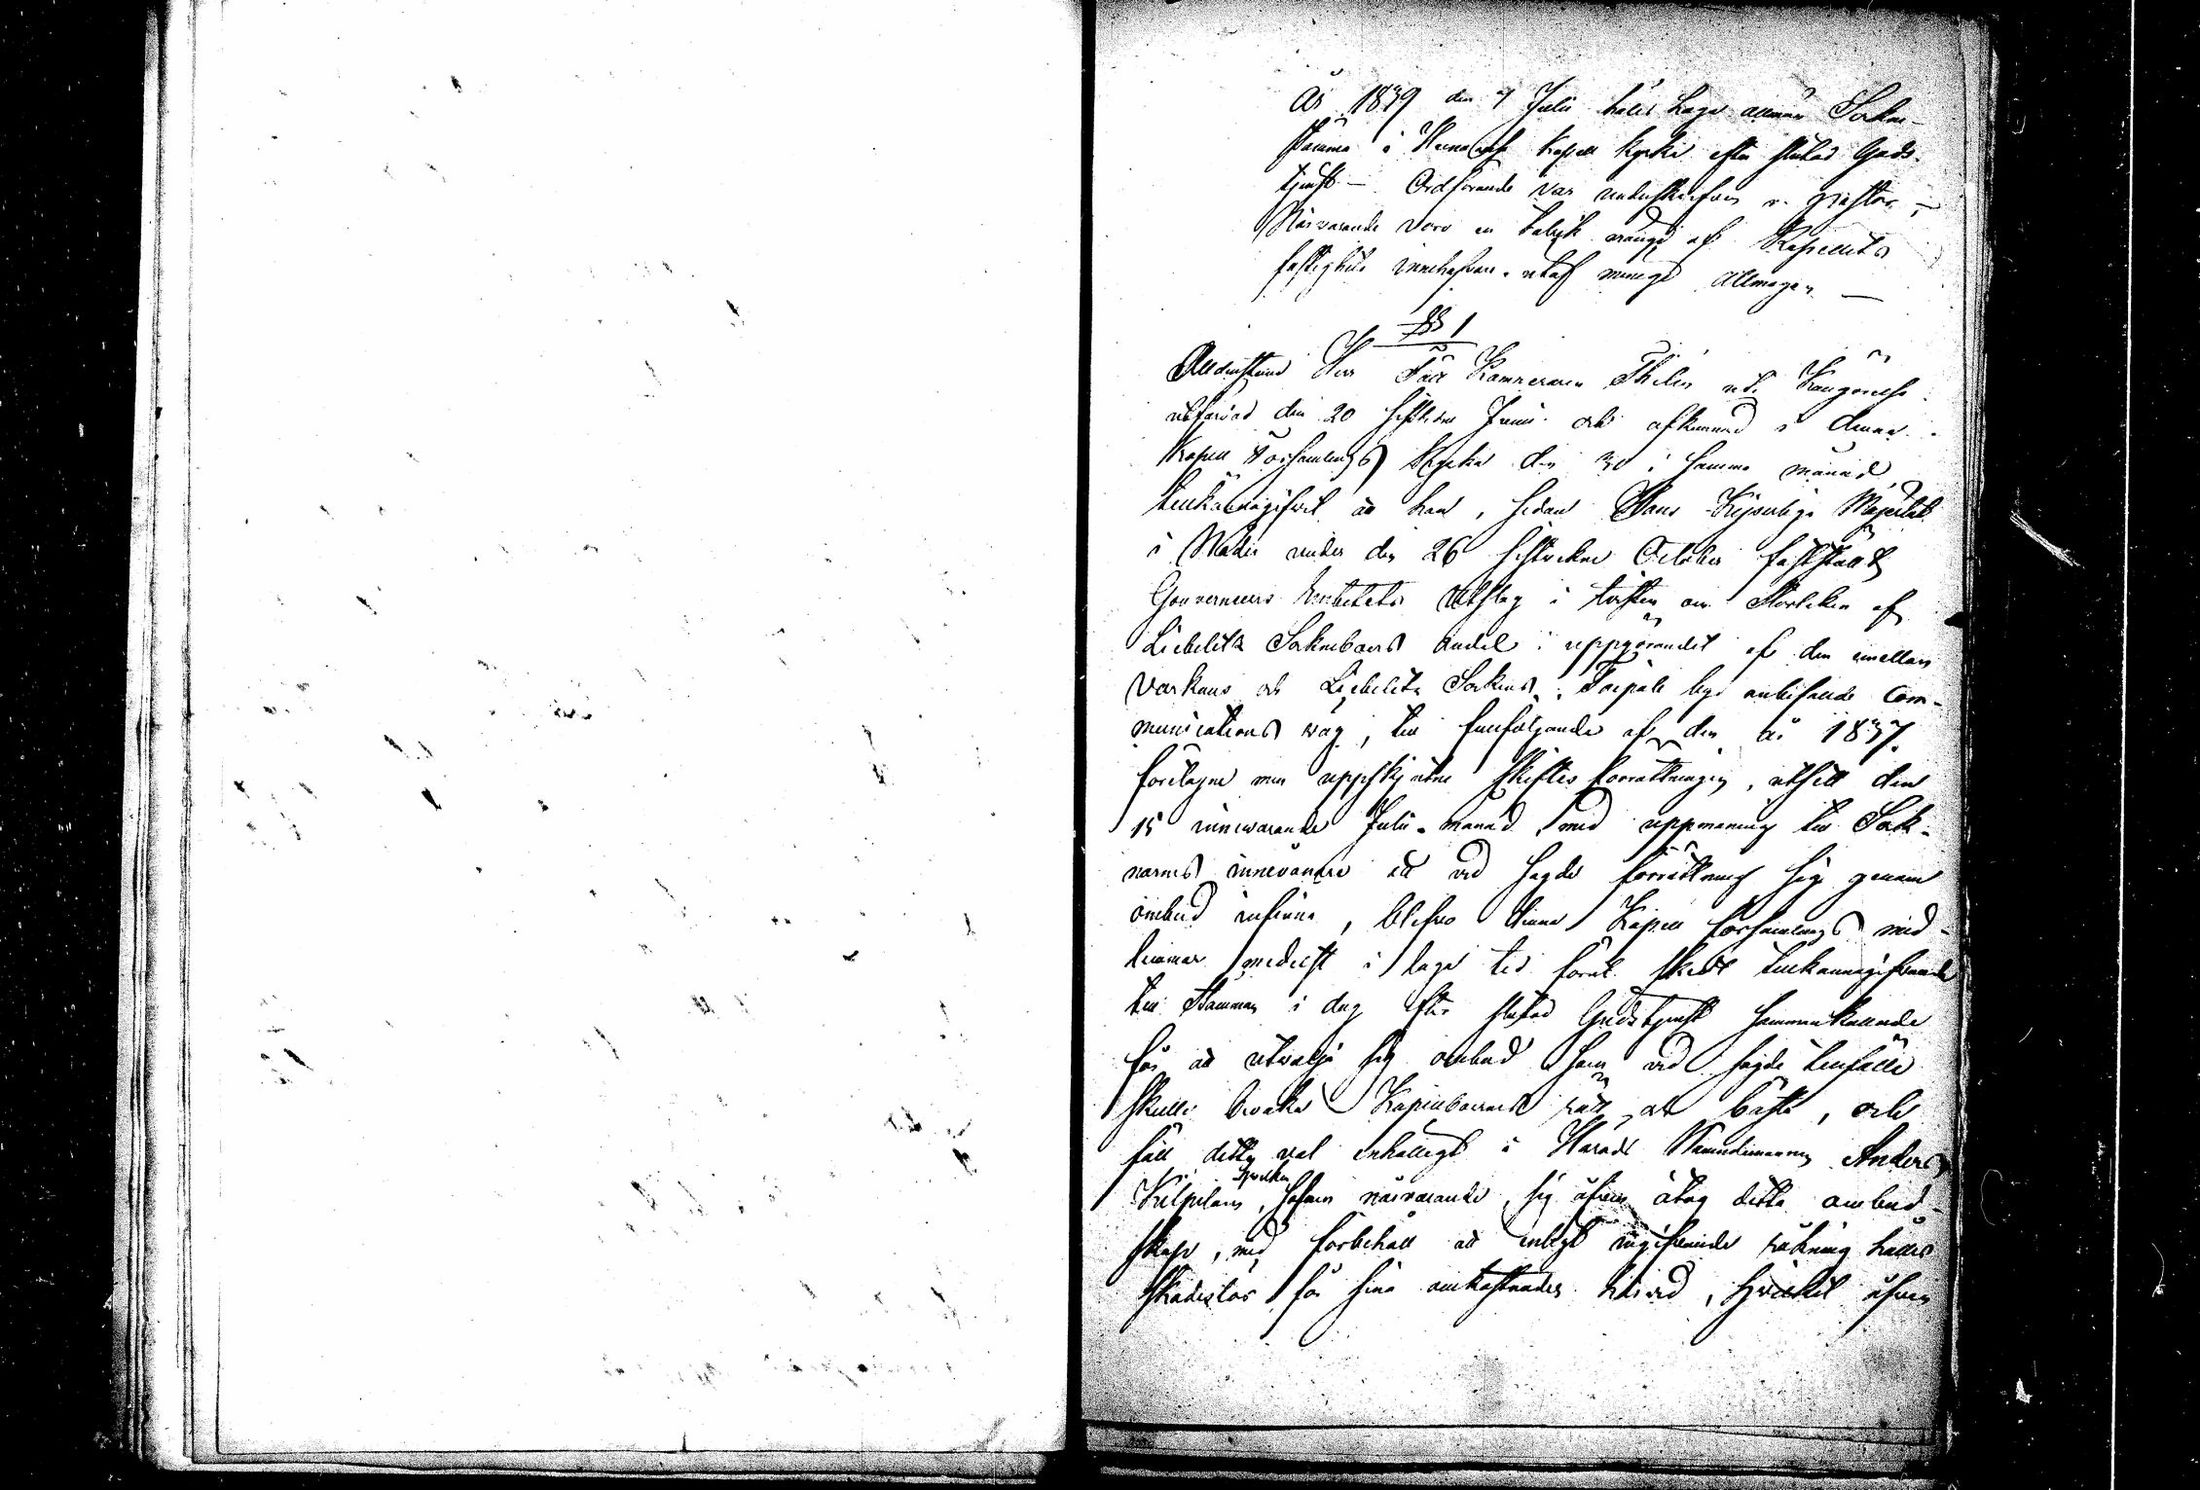 År 1839 den 7 Julii hölls laga allmän Sockne-
stämma i Kapell kyrka efter slutad Guds-
tjenst — Ordförande var undertecknad v. pastor,
Närvarande voro en talrik mängd af Kapellets
fastighets innehafvare utaf menige Allmogen —
§ 1
Alldenstund Herr Kammeraren Thilén uti Kungörelse
utfärdad den 20 sistledne Junii och afkunnad i denna
Kapell Församlings Kyrka den 30 i samma månad
tillkännagifvit at han, sedan Hans Kejserliga Majestät
i Nåder under den 26 sistvekne October fastställt
Gouverneurs Embetets Utslag i tvisten om Storleken af
Liebelitz Sockneboers andel i uppgörandet af den emellan
Varkaus och Liebelitz Socknar i Taipale by anbefallde Com-
munications väg, till fullföljande af den år 1837
företagne men uppskjutne skiftes förrättningen, utsatt den
15 innevarande Julii månad, med uppmaning till Sock-
narnes innevånare att vid sagde förrättning sig genom
ombud infinna, blefvo denna Kapell församlings med-
lemmar medelst i laga tid förut skedt tillkännagifvande
till Stämman i dag efter slutad Gudstjenst sammankallade
för at utvälja sig ombud som vid sagde tillfälle
skulle bevaka Kapellboernes rätt och bästa, och
föll detta val enhälligt i Härads Nämndemannen Anders
Kilpelain, hvilken såsom närvarande, sig äfven åtog detta ombud-
skap, med förbehåll at enligt ingifvande räkning hållas
skadeslös för sina omkostnader härvid, hvilket äfven